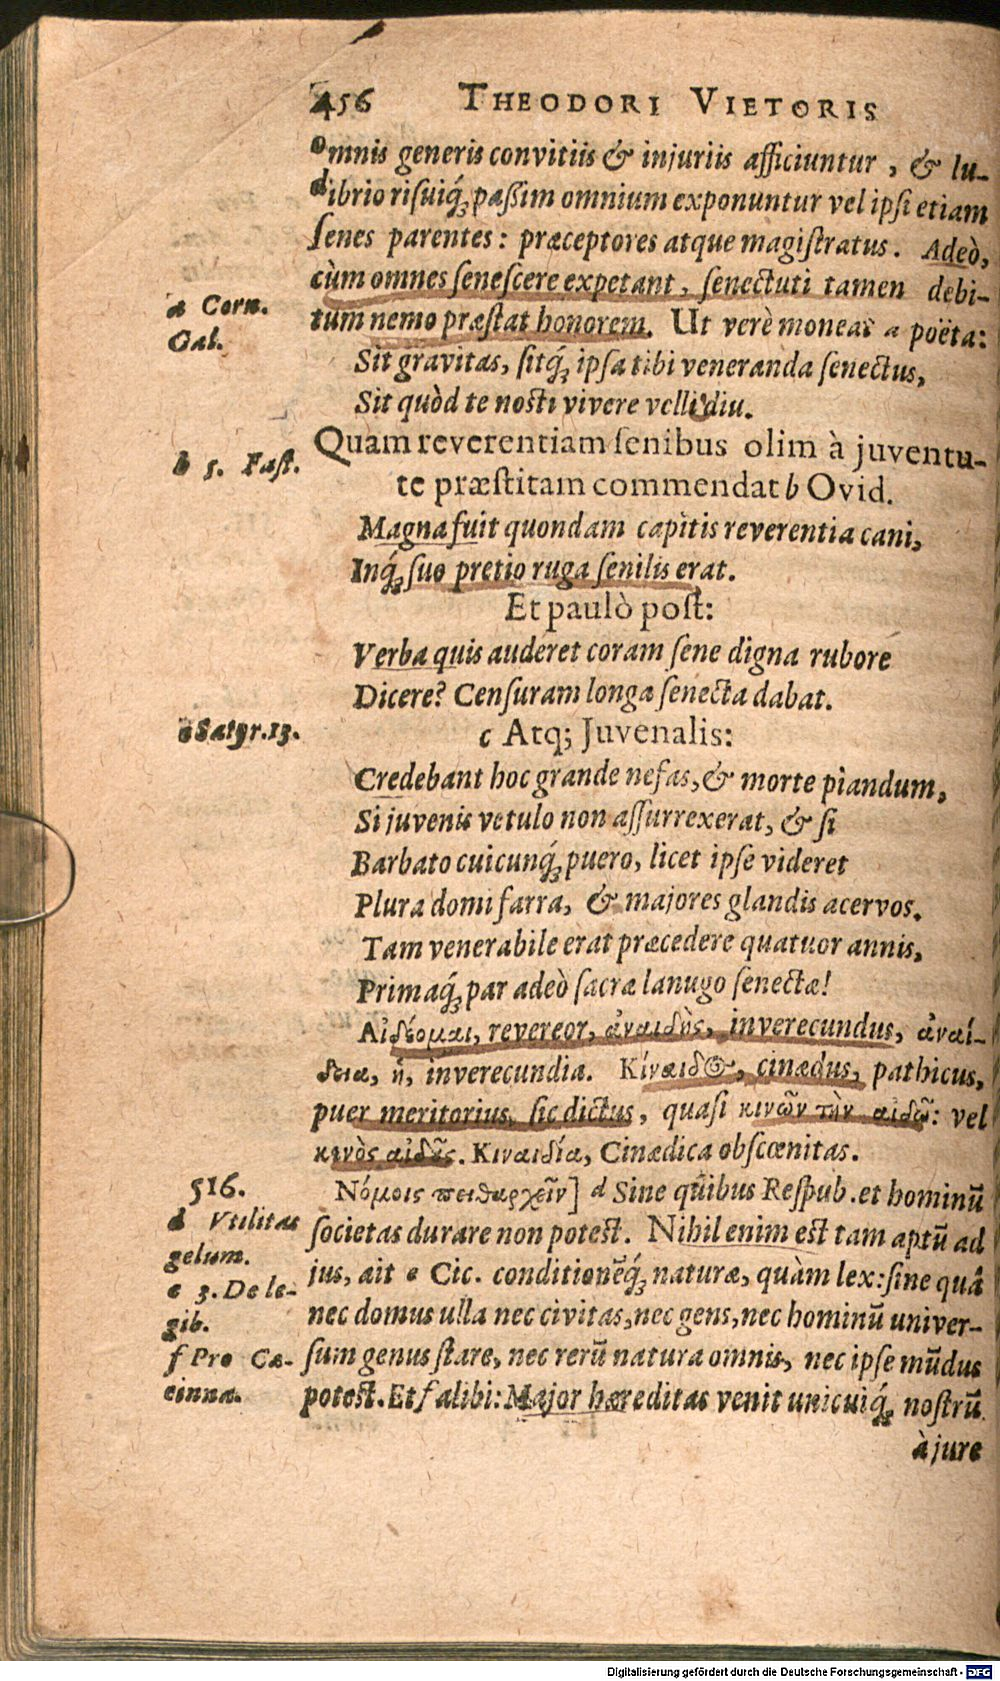 456 THEODORI VIETORIS
omnis generis convitiis & injuriis afficiuntur, & lu-
dibrio risuiq́; paßim omnium exponuntur vel ipsi etiam
senes parentes: præceptores atque magistratus. Adeò,
cùm omnes senescere expetant, senectuti tamen debi-
tum nemo præstat honorem. Ut verè moneat a poëta:
a Corn.
Gal.
Sit gravitas, sitq́; ipsa tibi veneranda senectus,
Sit quòd te nosti vivere velle diu.
Quam reverentiam senibus olim à juventu-
te præstitam commendat b Ovid.
b 5. Fast.
Magna fuit quondam capitis reverentia cani,
Inq́; suo pretio ruga senilis erat.
Et paulò post:
Verba quis auderet coram sene digna rubore
Dicere? Censuram longa senecta dabat.
c Atq; Juvenalis:
c Satyr. 13.
Credebant hoc grande nefas, & morte piandum,
Si juvenis vetulo non assurrexerat, & si
Barbato cuicunq́; puero, licet ipse videret
Plura domi farra, & majores glandis acervos.
Tam venerabile erat præcedere quatuor annis,
Primaq́; par adeò sacræ lanugo senectæ!
Αἰδέομαι, revereor, ἀναιδὴς, inverecundus, ἀναί-
δεια, ἡ, inverecundia. Κίναιδος, cinædus, pathicus,
puer meritorius, sic dictus, quasi κινῶν τὴν αἰδῶ: vel
κινὸς αἰδῦς. Κιναιδία, Cinædica obscœnitas.
516.
Νόμοις πειθαρχεῖν] d Sine quibus Respub. et hominũ
societas durare non potest. Nihil enim est tam aptũ ad
jus, ait e Cic. conditionĕq́; naturæ, quàm lex: sine quâ
nec domus ulla nec civitas, nec gens, nec hominũ univer-
sum genus stare, nec rerũ natura omnis, nec ipse mũdus
potest. Et f alibi: Major hæreditas venit unicuiq́; nostrũ
d Vtilitas
gelum.
e 3. De le-
gib.
f Pro Cæ-
cinna.
à jure
Digitalisierung gefördert durch die Deutsche Forschungsgemeinschaft - DFG